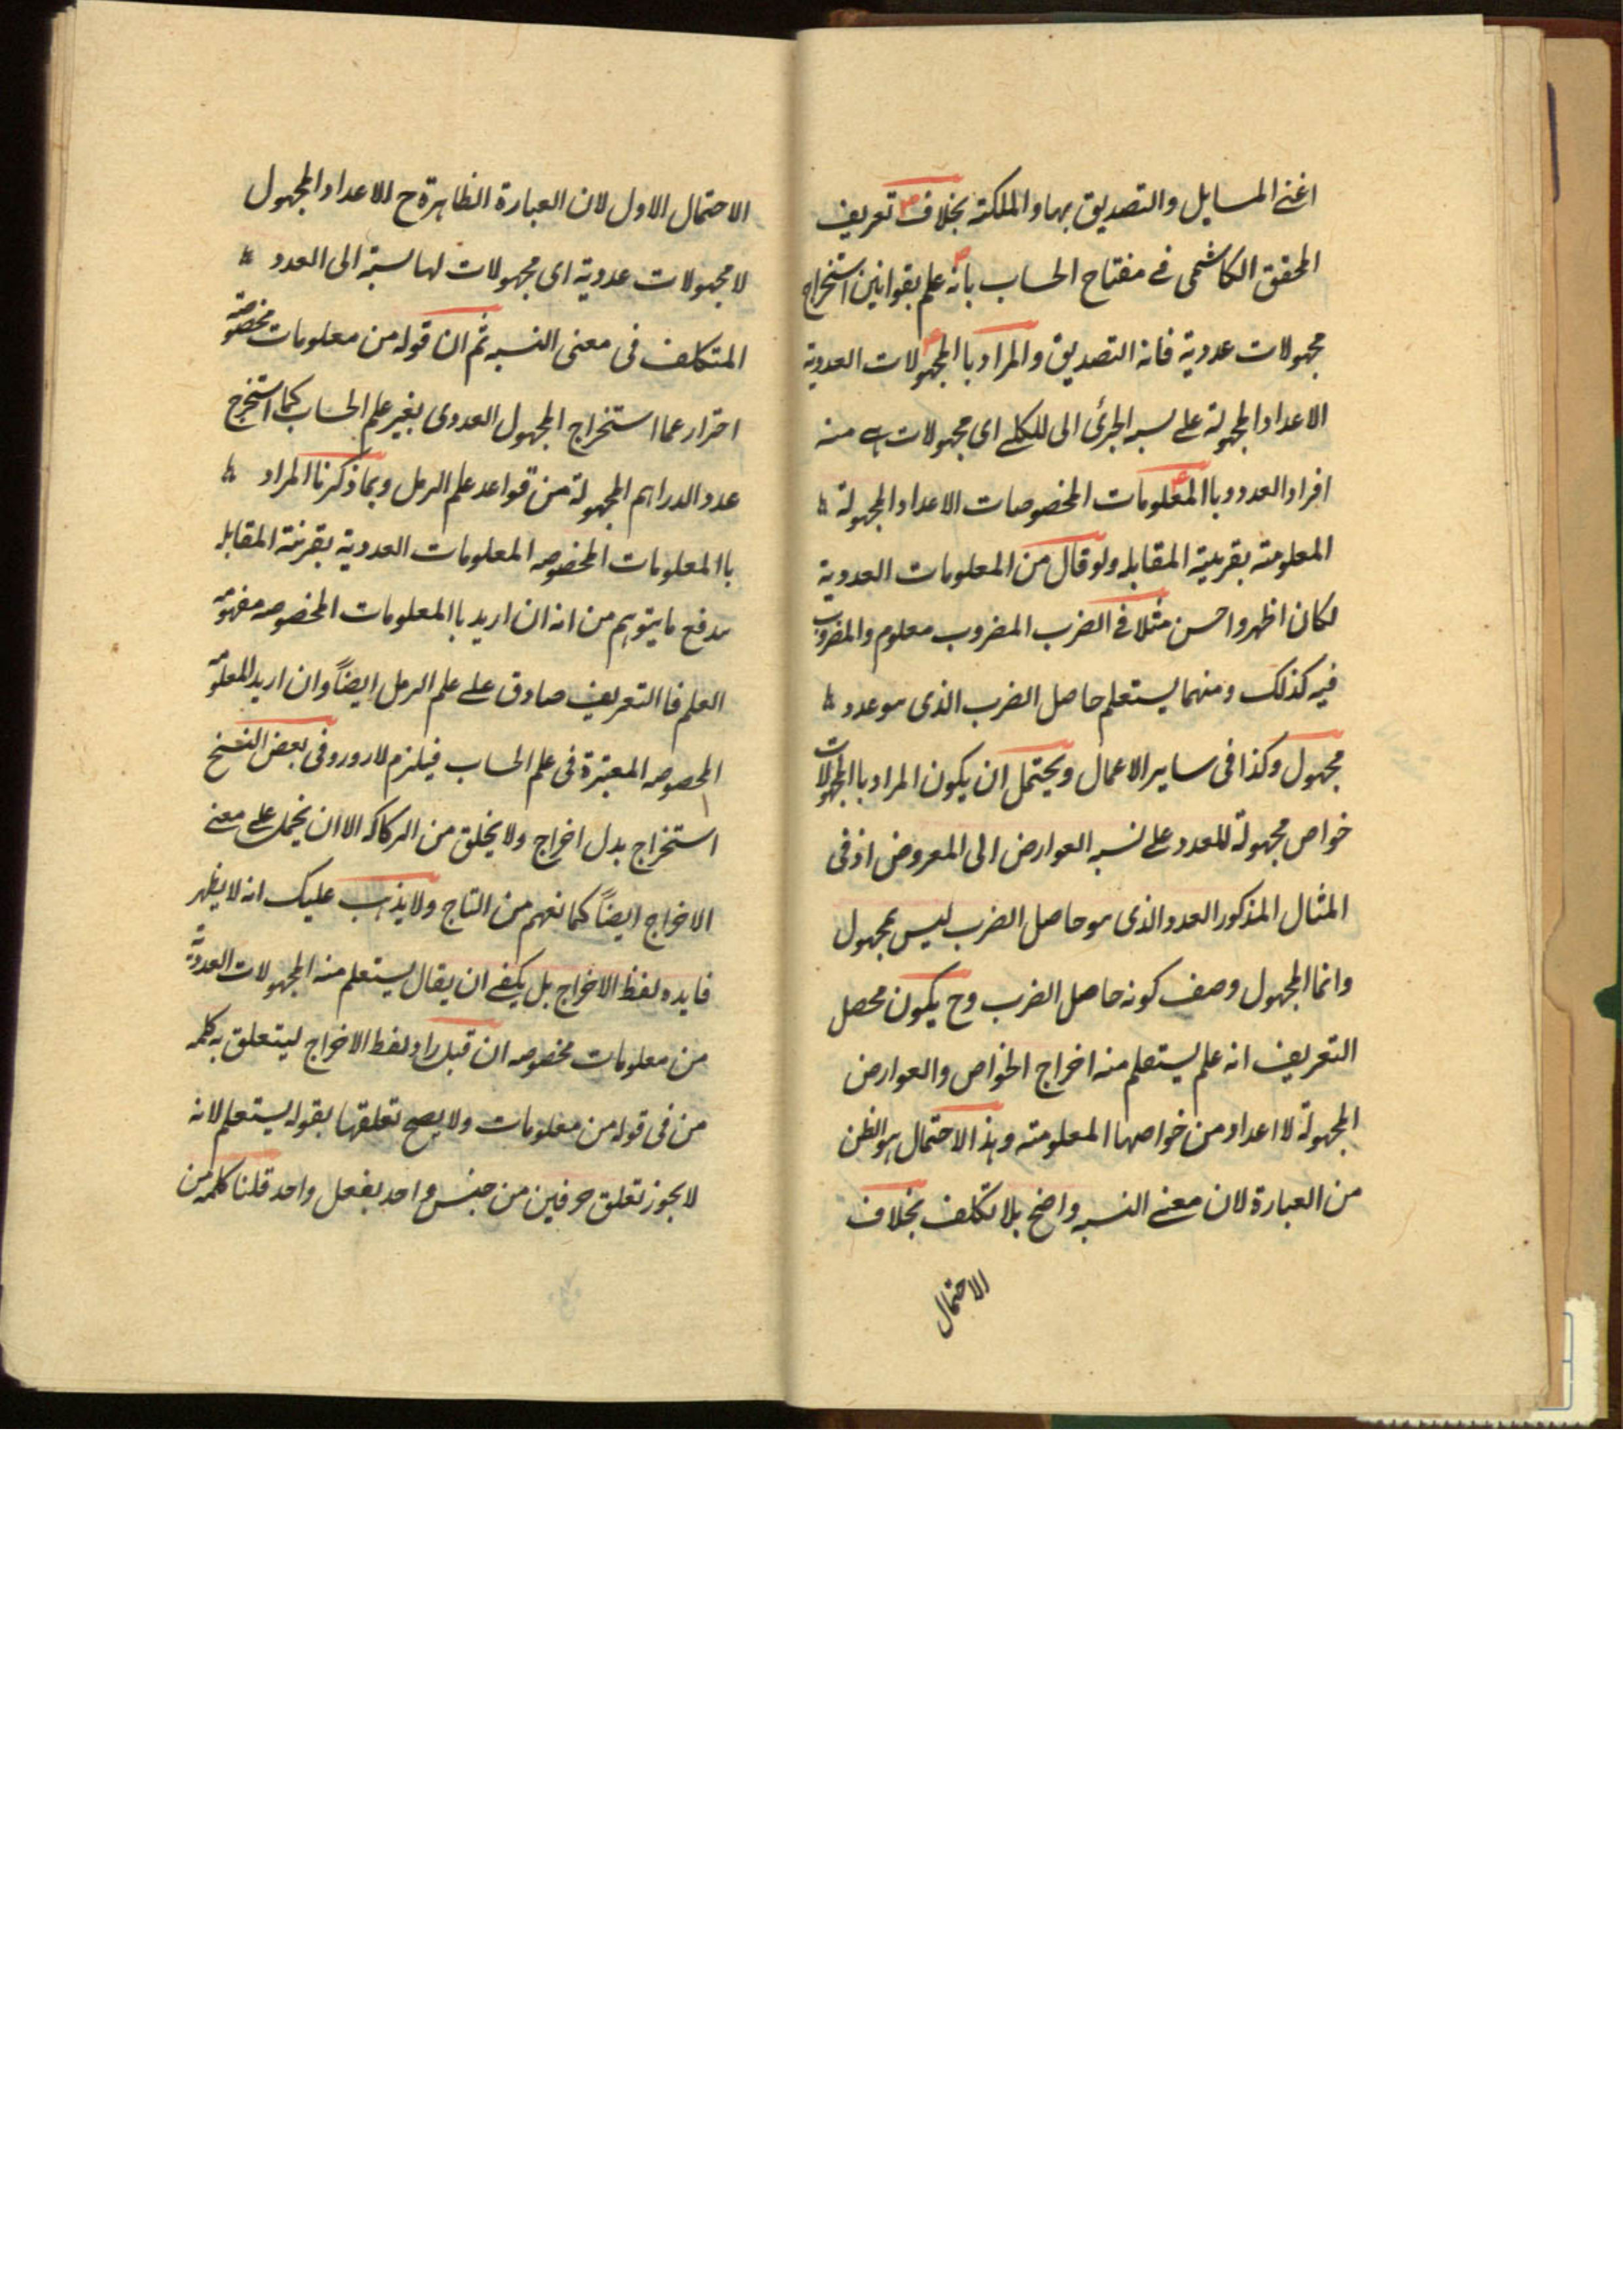 اعنے المسایل والتصدیق بها والملکة بخلاف تعریف
المحقق الکاشی فے مفتاح الحساب بانه علم بقوانین استخراج
مجهولات عددیة فانه التصدیق والمراد باالمجهولات العددیة
الاعداد المجهولة علے نسبه الجزئی الی الکلے ای مجهولات هے منه
افراد العدد وباالمعلومات المخصوصات الاعداد المجهولة
المعلومته بقرینیة المقابله ولو قال من المعلومات العددیة
لکان اظهر واحسن مثلا فے الضرب المضروب معلوم والمضروب
فیه کذلک ومنهما یستعلم حاصل الضرب الذی هو عدد
مجهول وکذا فی سایر الاعمال ویحتمل ان یکون المراد باالمجهولات
خواص مجهولة للعدد علے نسبه العوارض الی المعروض اذ فی
المثال المذکور العدد الذی هو حاصل الضرب لیس بمجهول
وانما المجهول وصف کونه حاصل الضرب وح یکون محصل
التعریف انه علم یستعلم منه اخراج الخواص والعوارض
المجهولة لاعداد من خواصها المعلومته وهذا الاحتمال هو الظن
من العبارة لان معنے النسبه واضح بلا تکلف بخلاف
الاحتمال
الاحتمال الاول لان العبارة الظاهرة ح الاعداد المجهول
لا مجهولات عددیة ای مجهولات لها نسبة الی العدد
المتکلف فی معنی النسبه ثم ان قوله من معلومات مخصوصة
احتراز عما استخراج المجهول العددی بغیر علم الحساب کما استخرج
عدد الدراهم المجهولة من قواعد علم الرمل وبما ذکرنا المراد
باالمعلومات المخصوصه المعلومات العددیة بقرینة المقابله
یدفع ما یتوهم من انه ان ارید باالمعلومات المخصوصه مفهومه
العلم فا التعریف صادق علے علم الرمل ایضاً وان ارید المعلومه
المخصوصه المعتبرة فی علم الحساب فیلزم الدور وفی بعض النسخ
استخراج بدل اخراج ولا یخلق من الرکاکه الا ان یحمل علے معنے
الاخراج ایضاً کما نفهم من التاج ولا یذهب علیک انه لا یظهر
فایده لفظ الاخراج بل یکفے ان یقال یستعلم منه المجهولات العددیة
من معلومات مخصوصه ان قبل زاد لفظ الاخراج لیتعلق به کلمه
من فی قوله من معلومات ولا یصح تعلقها بقوله یستعلم لانه
لا یجوز تعلق حرفین من جنس واحد بفعل واحد قلنا کلمه من